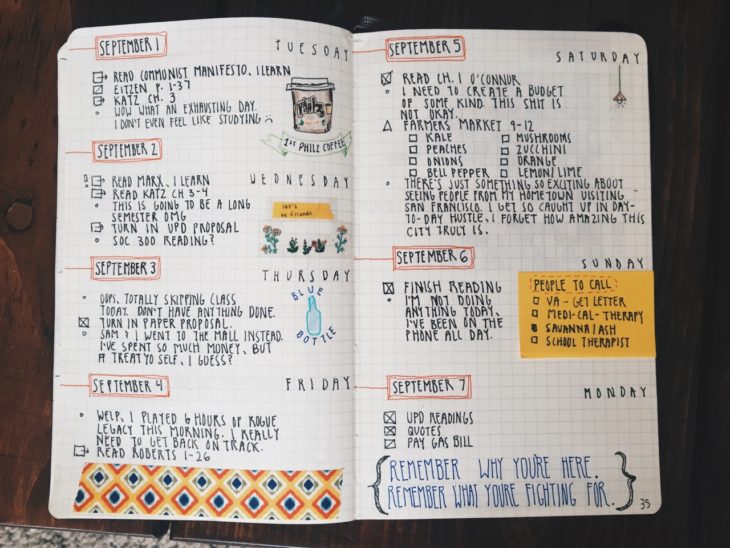 SEPTEMBER 1
TUESDAY
READ COMMUNIST MANIFESTO, ILEARN
EITZEN P. 1-37
KATZ CH. 3
WOW WHAT AN EXHAUSTING DAY.
I DON'T EVEN FEEL LIKE STUDYING
1ST PHILZ COFFEE
SEPTEMBER 2
WEDNESDAY
! READ MARX, ILEARN
READ KATZ CH 3-4
THIS IS GOING TO BE A LONG
SEMESTER OMG
TURN IN UPD PROPOSAL
SOC 300 READING?
let's
be friends
SEPTEMBER 3
THURSDAY
OOPS, TOTALLY SKIPPING CLASS
TODAY. DON'T HAVE ANYTHING DONE.
TURN IN PAPER PROPOSAL.
SAM & I WENT TO THE MALL INSTEAD.
I'VE SPENT SO MUCH MONEY, BUT
# TREAT YO SELF, I GUESS?
BLUE
BOTTLE
SEPTEMBER 4
FRIDAY
WELP, I PLAYED 6 HOURS OF ROGUE
LEGACY THIS MORNING. I REALLY
NEED TO GET BACK ON TRACK.
READ ROBERTS 1-26
SEPTEMBER 5
SATURDAY
READ CH. 1 O'CONNOR
I NEED TO CREATE A BUDGET
OF SOME KIND. THIS SHIT IS
NOT OKAY.
FARMERS MARKET 9-12
KALE
PEACHES
ONIONS
BELL PEPPER
MUSHROOMS
ZUCCHINI
ORANGE
LEMON/LIME
THERE'S JUST SOMETHING SO EXCITING ABOUT
SEEING PEOPLE FROM MY HOMETOWN VISITING
SAN FRANCISCO. I GET SO CAUGHT UP IN DAY-
TO-DAY HUSTLE, I FORGET HOW AMAZING THIS
CITY TRULY IS.
SEPTEMBER 6
SUNDAY
FINISH READING
I'M NOT DOING
ANYTHING TODAY,
I'VE BEEN ON THE
PHONE ALL DAY.
PEOPLE TO CALL
VA - GET LETTER
MEDI-CAL-THERAPY
SAVANNA/ASH
SCHOOL THERAPIST
SEPTEMBER 7
MONDAY
UPD READINGS
QUOTES
PAY GAS BILL
REMEMBER WHY YOU'RE HERE.
REMEMBER WHAT YOU'RE FIGHTING FOR.
35